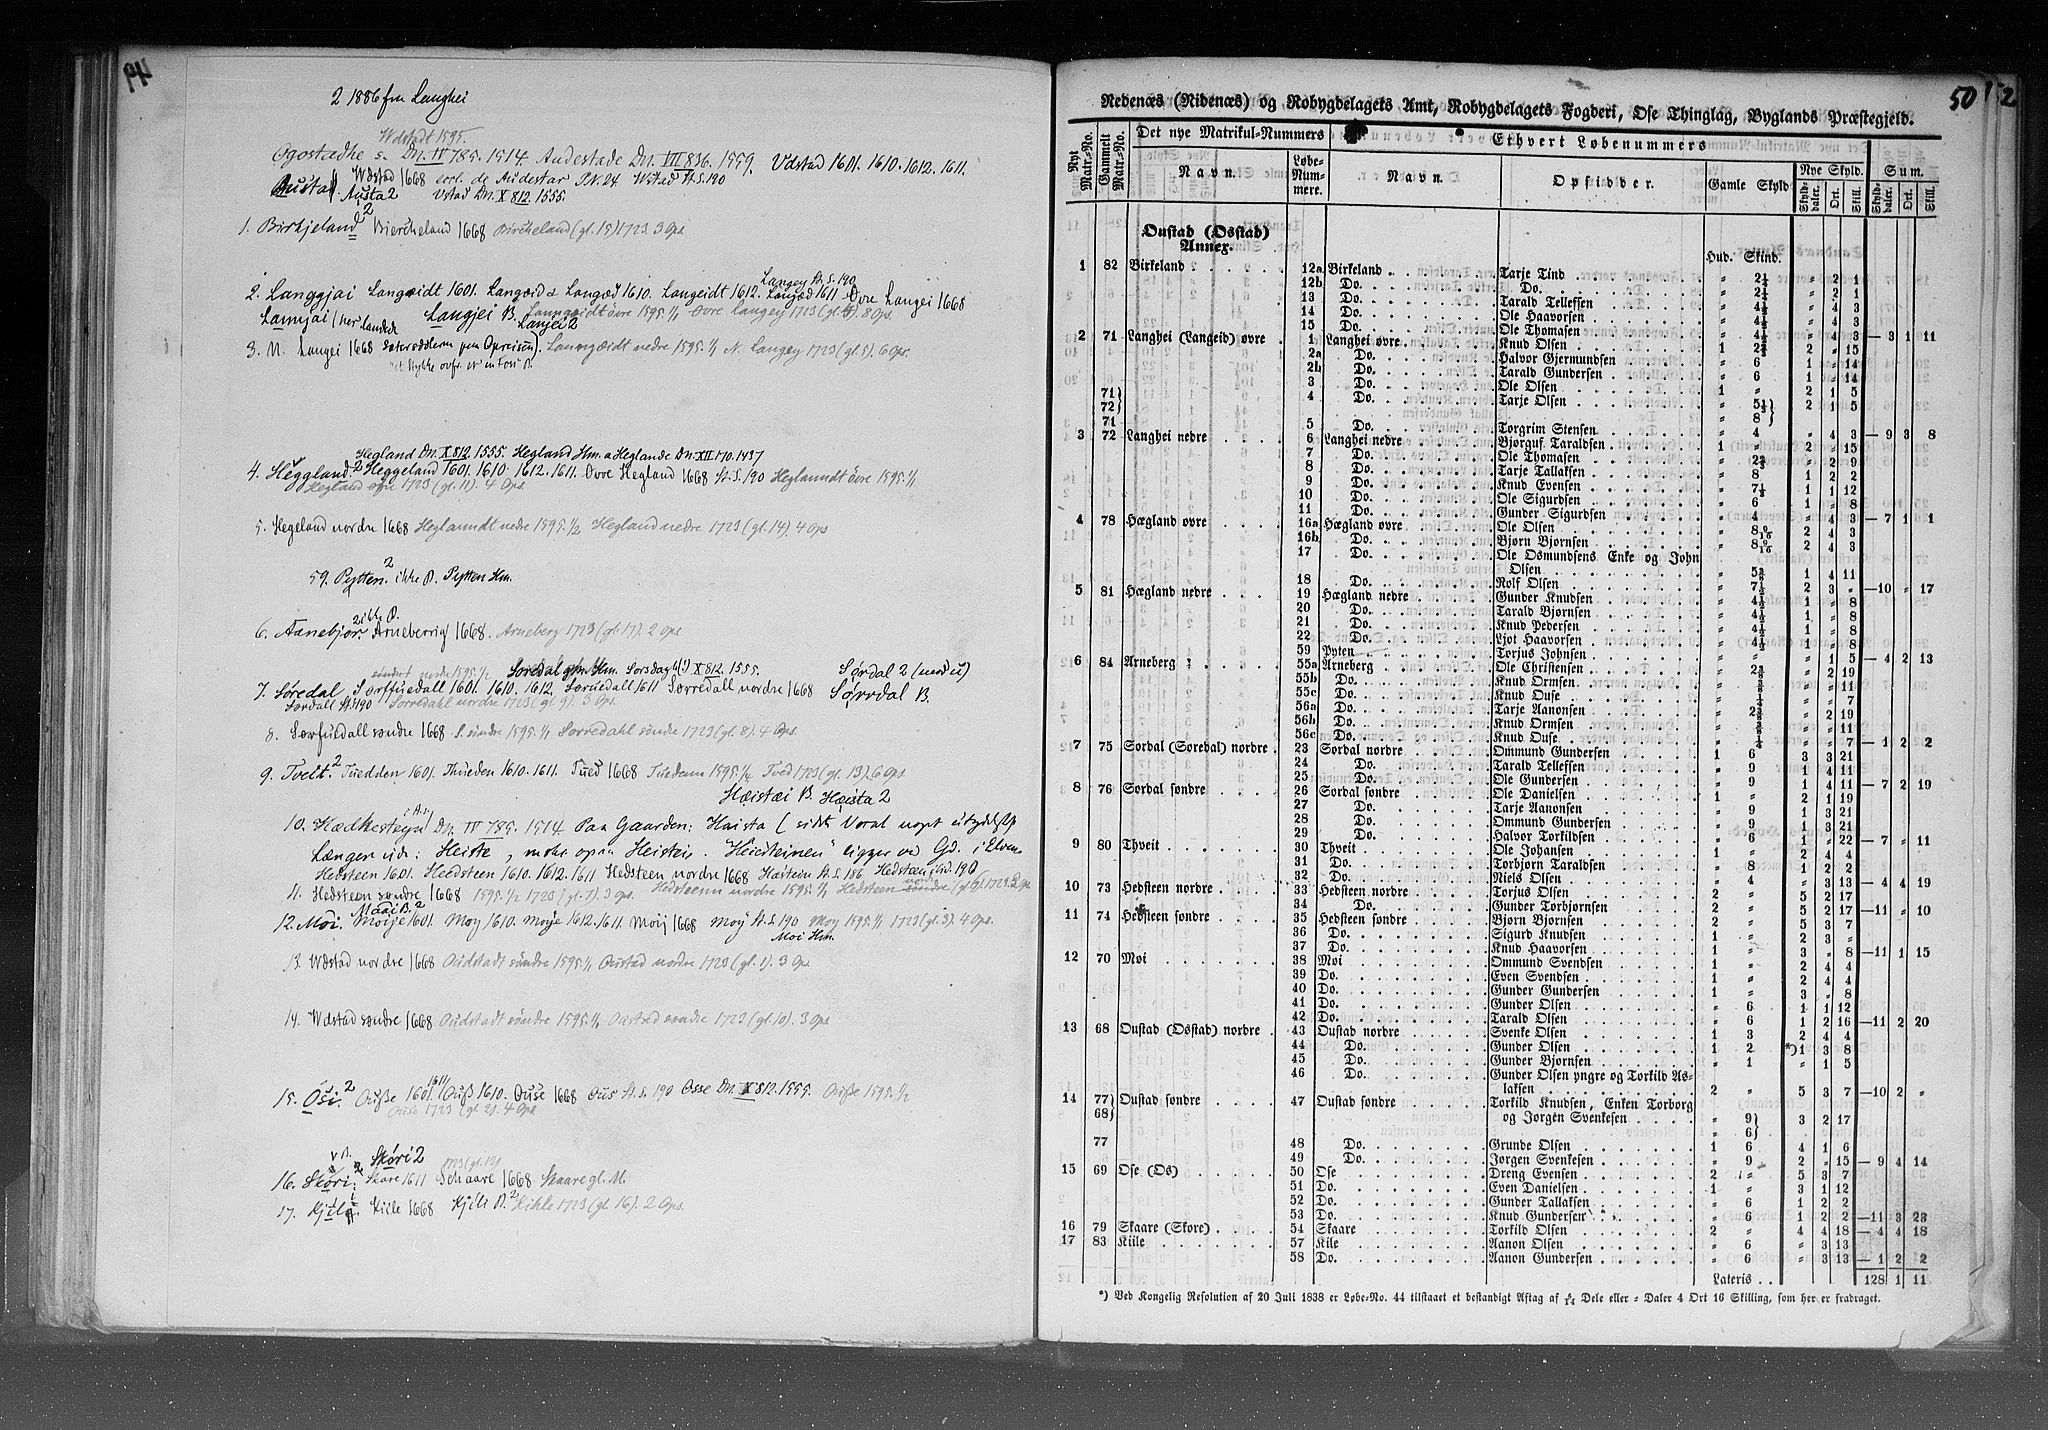 2 1886 fra Langhei
Wdstadt 1595.
Ogostadhe s. Dn. IV 785. 1514. Audestade Dn. VII 836. 1559. Vdstad 1601. 1610. 1612. 1611.
Austa Wdstad 1668 Audestar JN. 24 Wstad St. S. 190
Austa 2 Vstad Dn. X 812. 1555.
1. Birkjeland 2 Biercheland 1668 Bircheland (gl. 15) 1723. 3 Ops.
Langey St. S. 190
2. Langgjai Langeidt 1601. Langæid Langæd 1610. Langeidt 1612. Langæd 1611 Øvre Langei 1668
Langjei B. Lanngeidt övre 1595. 1/1 Øvre Langey 1723 8 Ops.
Langjei 2
3. N. Langei 1668 Lanngæidt nedre 1595. 1/1 N. Langey 1723 (gl. 5) 6 Ops.
Hegland Dn. X 812. 1555. Hegland Hm. a Heglande Dn. XII 170. 1437
4. Heggland 2 Heggeland 1601. 1610. 1612. 1611. Øvre Hegland 1668 St. S. 190 Heglanndt övre 1595. 1/1
Hegland øvre 1723 (gl. 11). 4 Ops.
5. Hegeland nordre 1668 Heglanndt nedre 1595. 1/2 Hegland nedre 1723 (gl. 14). 4 Ops
59. Pytten. 2 ikke B. Pytten Hm.
2 ikke B.
6. Aanebjor. Arneberrig 1668. Arneberg 1723 (gl. 17). 2 Ops
søndre nordre 1595. 1/2 Sørdal Hm. Sorsdag (!) X 812. 1555. Sørdal 2 (med u)
7. Søredal Sorffuedall 1601. 1610. 1612. Soruedall 1611 Sørredall nordre 1668 Sørrdal B.
Sørdall St. S. 190 Sorredahl nordre 1723 (gl. 9). 3 Ops.
8. Sørfuedall søndre 1668 S. søndre 1595. 1/1 Sorredahl søndre 1723 (gl. 8). 4 Ops.
9. Tveit. 2 Tuedden 1601. Thueden 1610. 1611. Tued 1668 Tuedenn 1595. Tved 1723 (gl. 13). 6 Ops
Hæistæi B. Hæista 2
10. Hædkesteyn Dn. IV 785. 1514. Paa Gaarden: Haista (sidste Vocal noget utydelig)
Længer ude: Heiste, ogsaa Heistei. "Heiesteinen" ligger ved Gd. i Elven
Hedsteen 1601. Heedsteen 1610. 1612. 1611 Hedsteen nordre 1668 St. S. 186 Hedsteen 190
11. Hedsteen søndre 1668 1595. 1/2 1723 (gl. 7). 3 Ops. Hedsteenn nordre 1595. 1/1 Hedsteen nordre 1723.
Moai B. 2
12. Moi. Moije 1601. Moy 1610. Moye 1612. 1611. Moij 1668 Moÿ St. S. 190 Moy 1595. 1/1 1723 (gl. 3). 4 Ops.
Moi Hm.
13. Wdstad nordre 1668 Audstadt söndre 1595. 1/1 Oustad nordre 1723 (gl. 1). 3 Ops
14. Wdstad søndre 1668 Audstadt söndre 1595. 1/1 Oustad søndre 1723 (gl. 10). 3 Ops
15. Osi. 2 Ouße 1601. 1611 Ouß 1610. Ouse 1668 Ous St. S. 190 Osse Dn. X 812. 1555. Ouße 1595. 1/2
Ouse 1723 (gl. 2). 4 Ops
Sköri 2 1723 (gl. 12)
16. Sköri. Skore 1611 Schaare 1668 Skaare gl. M.
17. Kjili Kiile 1668 Kjili B. 2 Kihle 1723 (gl. 16). 2 Ops.
50
Nedenæs (Nidenæs) og Robygdelagets Amt, Robygdelagets Fogderi, Ose Thinglag, Byglands Præstegjeld.
Det nye Matrikul-Nummers Ethvert Løbenummers
Nyt Matr.-No. Gammelt Matr.-No. Navn. Løbe-Nummere. Navn. Opsidder. Gamle Skyld Nye Skyld. Sum.
Skylddaler. Ort. Skill. Skylddaler. Ort. Skill.
Oustad (Osstad)
Annex.
Hud. Skind.
1 82 Birkeland 12a Birkeland Tarje Tind " 2¼ " 2 1
12b Do. Do. " 2¼ " 2 1
13 Do. Tarald Tellefsen " 4½ " 4 3
14 Do. Ole Haavorsen " 4½ " 4 3
15 Do. Ole Thomasen " 4½ " 4 3 — 3 1 11
2 71 Langhei (Langeid) øvre 1 Langhei øvre Knud Olsen 1 2⅔ 2 " 15
2a Do. Halvor Gjermundsen " 6 1 " 14
2b Do. Tarald Gundersen " 6 1 " 14
3 Do. Ole Olsen 1 " 2 1 5
71} 72} 4 Do. Tarje Olsen " 5⅓} 8} 2 1 5
71 5 Do. Torgrim Stensen " 4 " 4 3 — 9 3 8
3 72 Langhei nedre 6 Langhei nedre Bjørguf Taraldsen 1 " 2 " 15
7 Do. Ole Thomasen " 2⅔ " 2 9
8 Do. Tarje Tallaksen " 8 1 2 2
9 Do. Knud Evensen " 7⅓ 1 1 12
10 Do. Ole Sigurdsen " 6 1 " 8
11 Do. Gunder Sigurdsen " 4 " 4 3 — 7 1 1
4 78 Hægland øvre 16a Hægland øvre Ole Olsen " 8 9/10 2 4 3
16b Do. Bjørn Bjørnsen " 8 9/10 2 4 3
17 Do. Ole Osmundsens Enke og John
Olsen " 5⅜ 1 4 11
18 Do. Rolf Olsen " 7½ 2 3 " —10 " 17
5 81 Hægland nedre 19 Hægland nedre Gunder Knudsen " 4½ 1 " 8
20 Do. Tarald Bjørnsen " 4½ 1 " 8
21 Do. Knud Pedersen " 4½ 1 " 8
22 Do. Ljot Haavorsen " 4½ 1 " 8
59 Pyten Torjus Johnsen " " 1 5 — 4 2 13
6 84 Arneberg 55a Arneberg Ole Christensen " 2⅜ " 2 19
55b Do. Knud Ormsen " " 11
55c Do. Knud Ouse " " 7
56a Do. Tarje Aanonsen " 2⅜ " 2 19
56b Do. Knud Ormsen " " 11
56c Do. Knud Ouse " ¼ " " 7 — 1 2 2
7 75 Sordal (Soredal) nordre 23 Sordal nordre Ommund Gundersen 1 6 3 3 21
24 Do. Tarald Tellefsen " 9 1 4 11
25 Do. Ole Gundersen " 9 1 4 11 — 7 2 19
8 76 Sordal søndre 26 Sordal søndre Ole Danielsen 1 " 2 1 19
27 Do. Tarje Aanonsen " 9 1 3 21
28 Do. Ommund Gundersen " 9 1 3 21
29 Do. Halvor Torkildsen " 6 1 " 22 — 7 " 11
9 80 Thveit 30 Thveit Ole Johansen 1 " 2 4 4
31 Do. Torbjørn Taraldsen " 8 1 2 2
32 Do. Niels Olsen " 4 " 3 13 — 4 4 19
10 73 Hedsteen nordre 33 Hedsteen nordre Torjus Olsen 2 " 5 2 17
34 Do. Gunder Torbjørnsen 2 " 5 2 17 —11 " 10
11 74 Hedsteen søndre 35 Hedsteen søndre Bjørn Bjørnsen 2 " 5 3 7
36 Do. Sigurd Knudsen 1 " 2 3 "
37 Do. Knud Haavorsen 1 " 3 " 8 —11 1 15
12 70 Moi 38 Moi Ommund Svendsen 1 " 2 4 4
39 Do. Even Svendsen 1 " 2 4 4
40 Do. Gunder Gundersen 1 " 3 " 8
41 Do. Gunder Olsen " 6 1 1 12
42 Do. Tarald Olsen " 6 1 2 16 —11 2 20
13 68 Oustad (Osstad) nordre 43 Oustad nordre Svenke Olsen 1 3 2 4 4
44 Do. Gunder Olsen 1 2 *)1 3 8
45 Do. Gunder Bjørnsen " 1 " 1 5
46 Do. Gunder Olsen yngre og Torkild As-
laksen 2 " 5 3 7 —10 2 "
14 77} 68} Oustad søndre 47 Oustad søndre Torkild Knudsen, Enken Torborg
og Jørgen Svenkesen " 9} 6} 3 2 17
77 48 Do. Grunde Olsen 1 6 4 1 6
49 Do. Jørgen Svenkesen " 9 2 " 15 — 9 4 14
15 69 Ose (Os) 50 Ose Dreng Evensen 2 " 5 3 7
51 Do. Even Danielsen 1 " 3 1 12
52 Do. Gunder Tallaksen " 6 1 2 2
53 Do. Knud Gundersen " 6 1 2 2 —11 3 23
16 79 Skaare (Skore) 54 Skaare Torkild Olsen 2 " 4 4 18 — 4 4 18
17 83 Kiile 57 Kile Aanon Olsen " 6 " 3 13
58 Do. Aanon Gundersen " 6 " 3 13 — 1 2 2
Lateris 128 1 11
*) Ved Kongelig Resolution af 20 Juli 1838 er Løbe-No. 44 tilstaaet et bestandigt Aftag af Dele eller " Daler 4 Ort 16 Skilling, som her er fradraget.